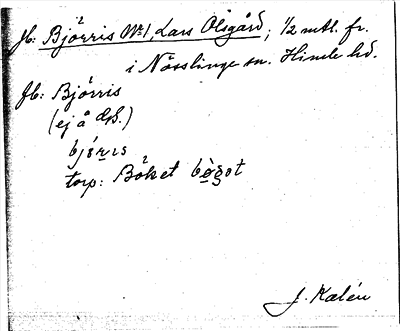 Jb: Bjorris № 1, Lars Olsgård; 1/2 mtl. fr.
i Nösslinge sn. Himle hd.
Jb: Bjorris
(ej å d.k.)
bjórıs
torp: Böket bògot
J. Kalén